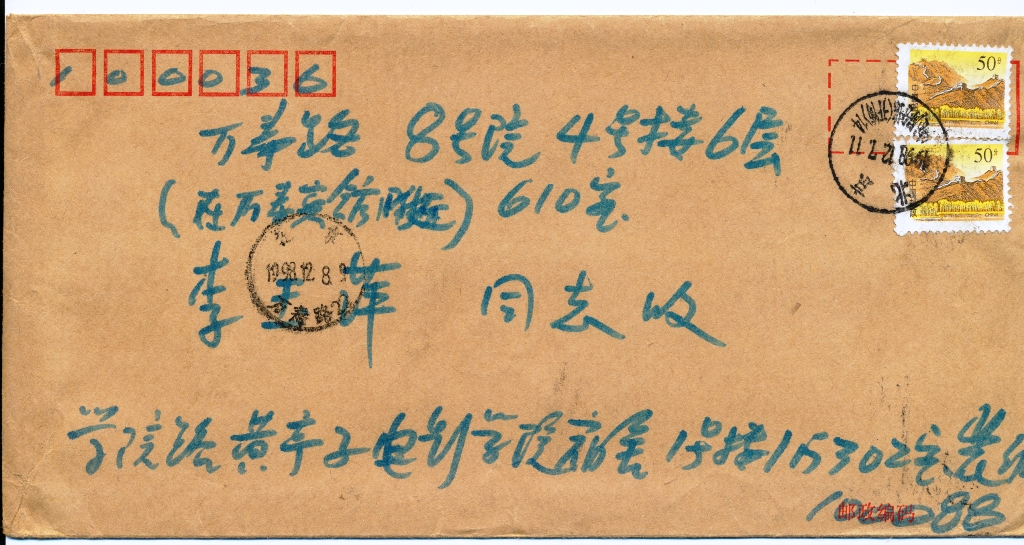 100036
50分
万寿路 8号院 4号楼6层
北京
1998.12.7.17
50分
CHINA
(在万寿宾馆附近) 610室
北京
1998.12.8.9
万寿路
李玉萍 同志 收
学院路黄亭子电影学院宿舍 1号楼1门302室
100088
邮政编码